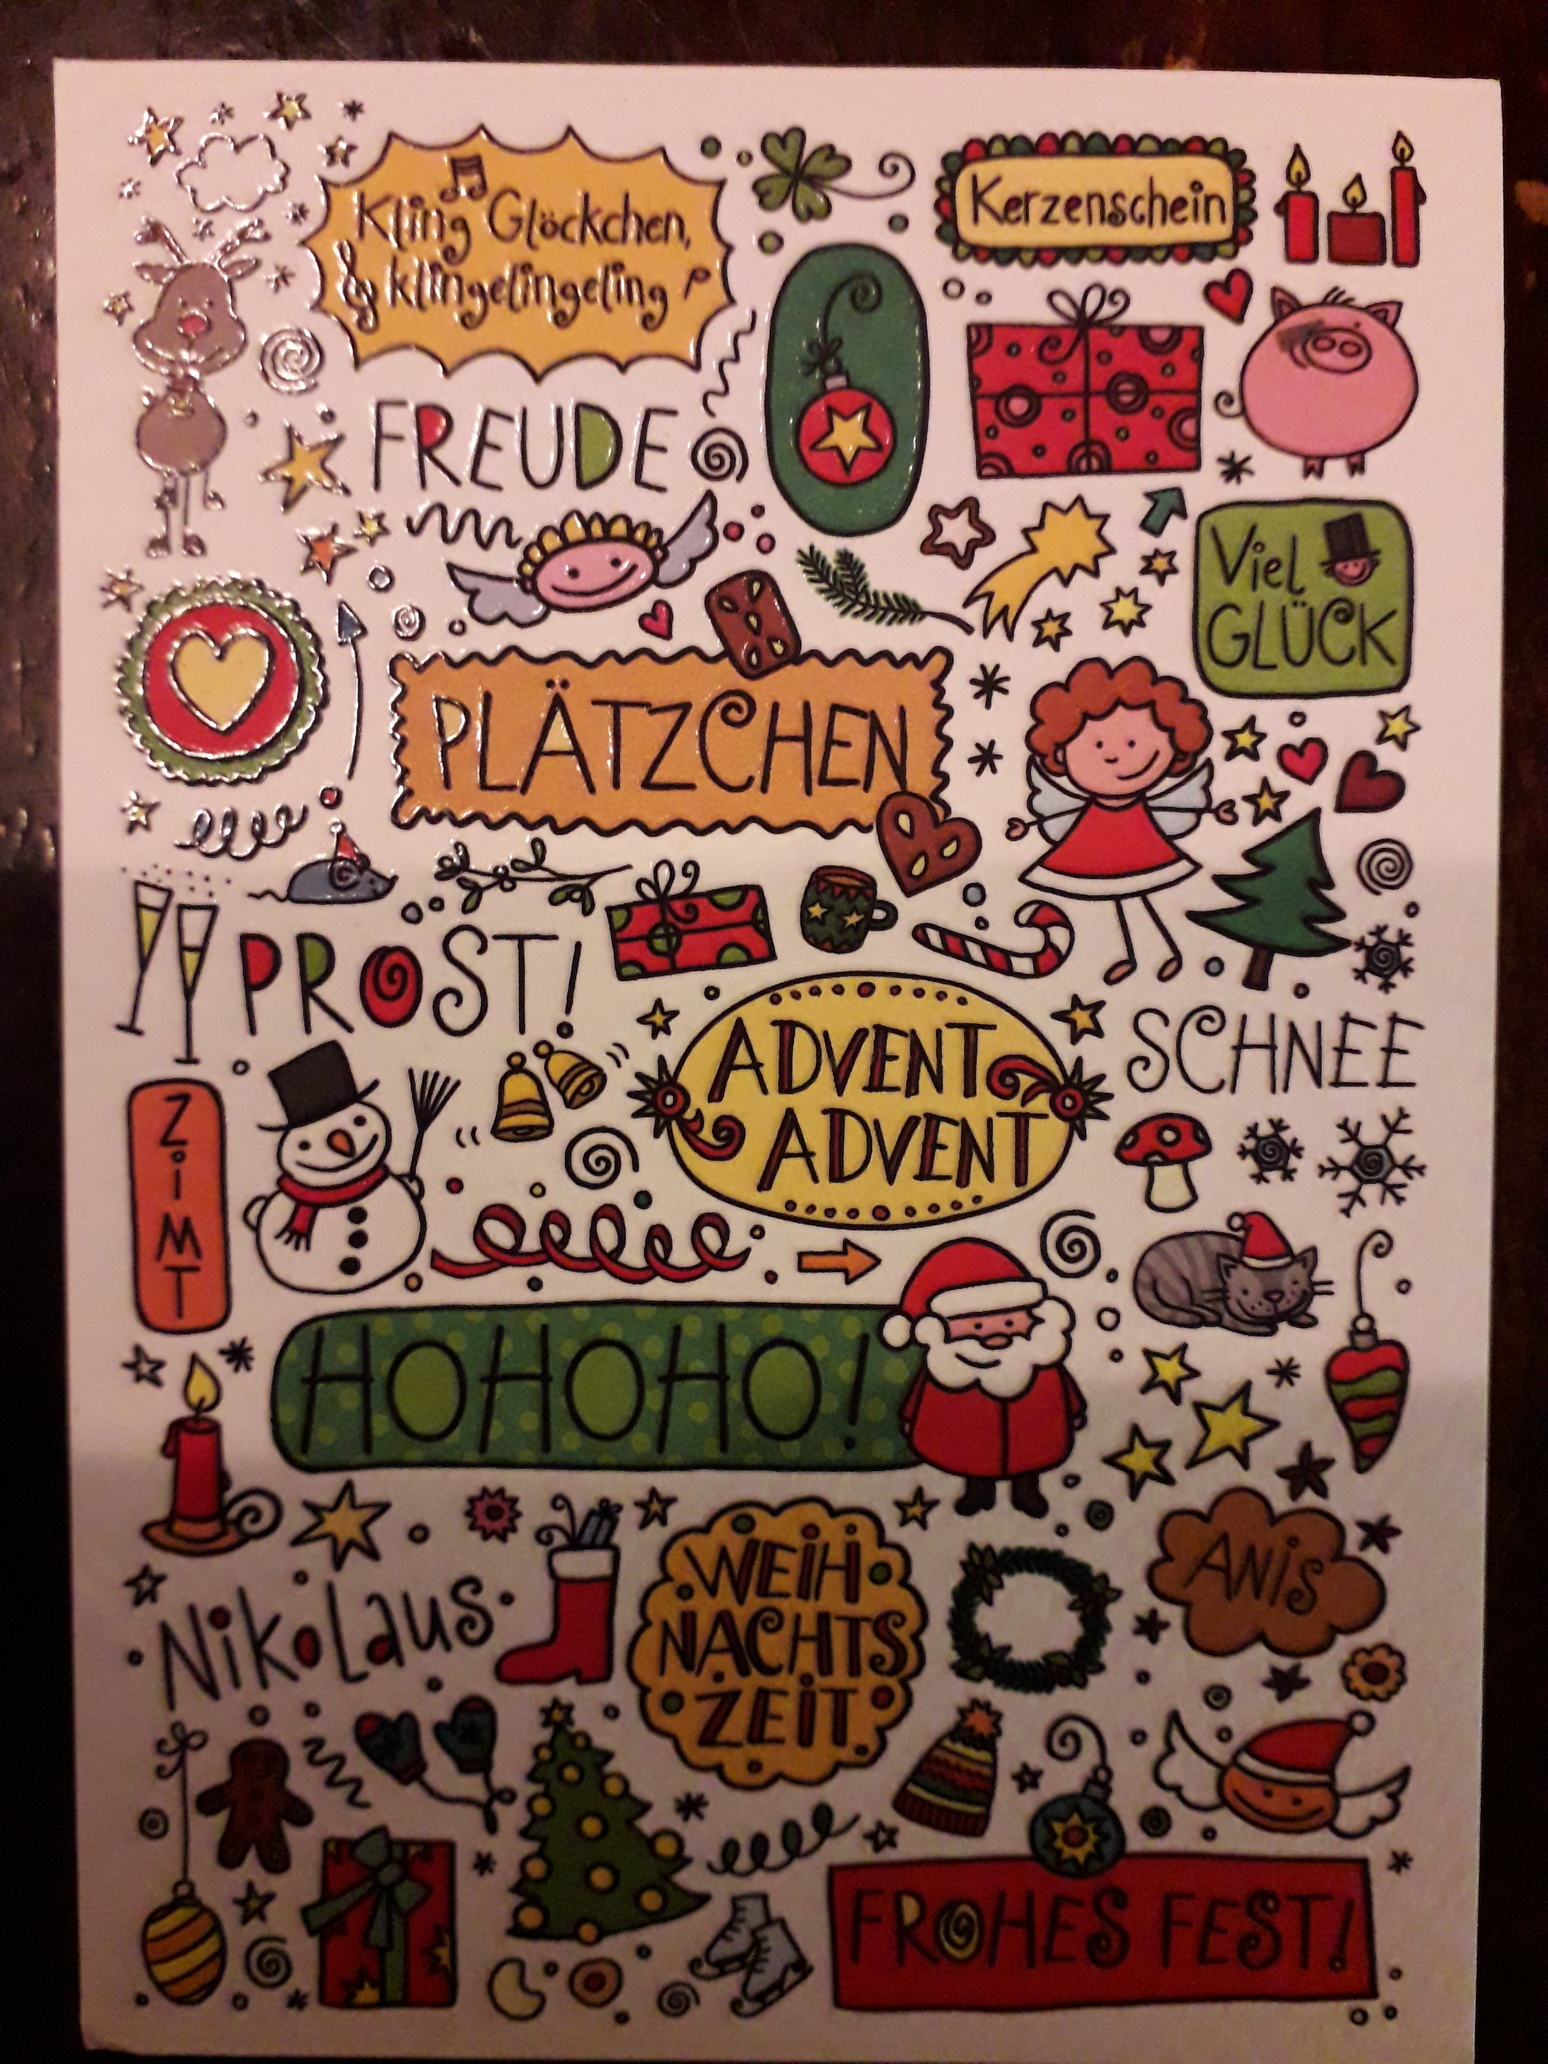 Kling Glöckchen,
klingelingeling
Kerzenschein
FREUDE
Viel
GLÜCK
PLÄTZCHEN
PROST!
ADVENT
ADVENT
SCHNEE
ZiMT
HOHOHO!
WEIH
NACHTS
ZEIT
ANiS
NikoLaus
FROHES FEST!